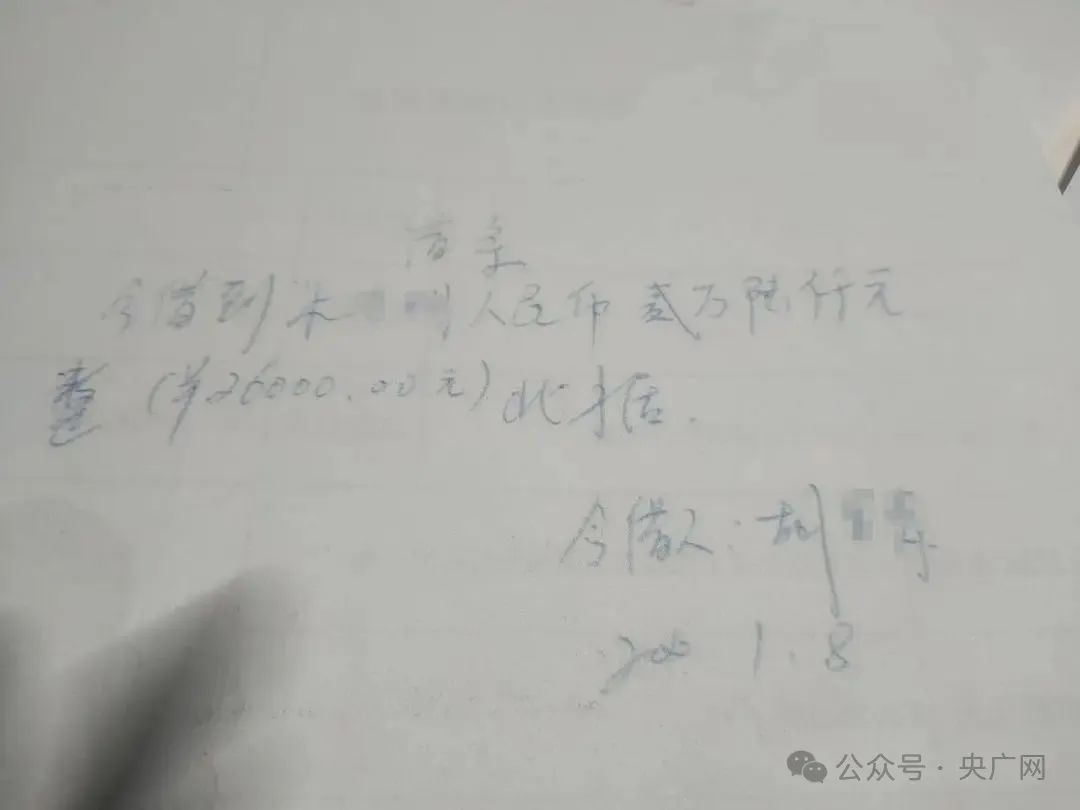 借条
今借到朱 人民币贰万陆仟元
整(¥26000.00元)此据.
今借人:胡
200 1.8
公众号·央广网